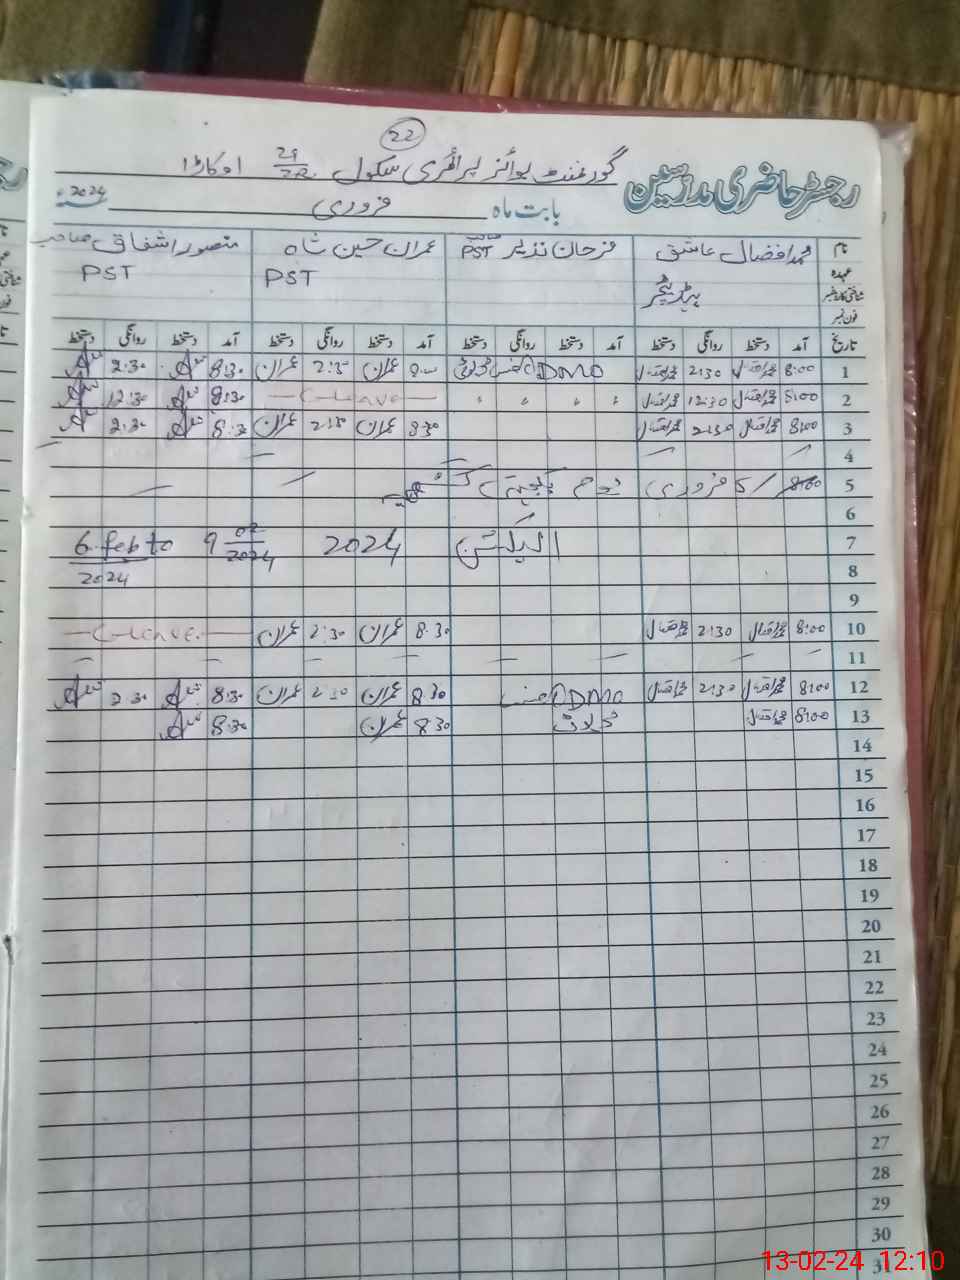 22
رجسٹر حاضری مدرسین گورنمنٹ بوائز پرائمری سکول 22 اوکاڑا
بابت ماہ فروری 2024
نام محمد افضال عاشق فرحان نذیر PST عمران حسین شاہ منصور اشفاق صاحب
عہدہ ہیڈ ٹیچر PST PST
شناختی کارڈ نمبر
فون نمبر
تاریخ آمد دستخط روانگی دستخط آمد دستخط روانگی دستخط آمد دستخط روانگی دستخط آمد دستخط روانگی دستخط
1 8:00 2:30 DMO آفس ڈیوٹی عمران 2:30 عمران 8:30 2:30
2 8:00 12:30 " " " " C-Leave 8:30 12:30
3 8:00 2:30 8:30 عمران 2:30 عمران 8:30 2:30
4
5 8:00 5/ فروری یوم یکجہتی کشمیر
6
7 الیکشن 2024 6 feb to 9 02/2024
8 2024
9
10 8:00 2:30 8:30 عمران 2:30 عمران C-Leave
11
12 8:00 2:30 DMO آفس 8:30 عمران 2:30 عمران 8:30 2:30
13 8:00 ڈیوٹی 8:30 عمران 8:30
14
15
16
17
18
19
20
21
22
23
24
25
26
27
28
29
30
31
13-02-24 12:10